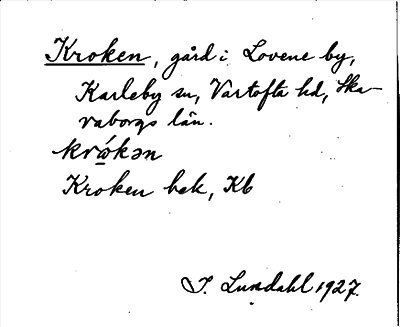 Kroken, gård i Lovene by,
Karleby sn, Vartofta hd, Ska-
raborgs län.
Kroken bek, Kb
I. Lundahl 1927.